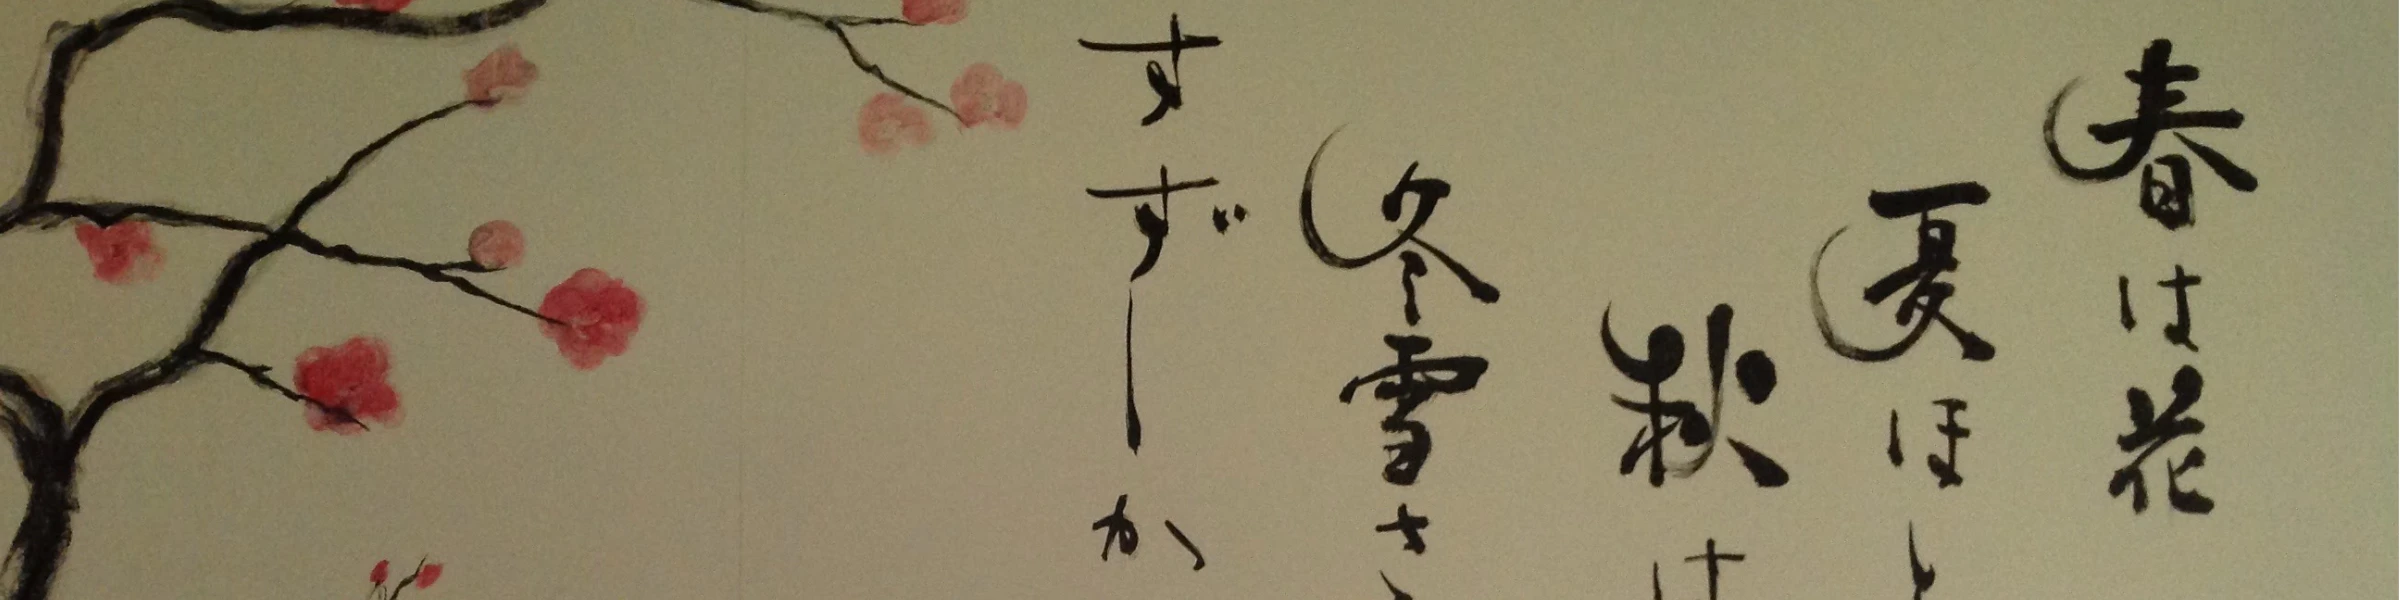 春は花
夏ほと
秋は
冬雪さ
すずしか